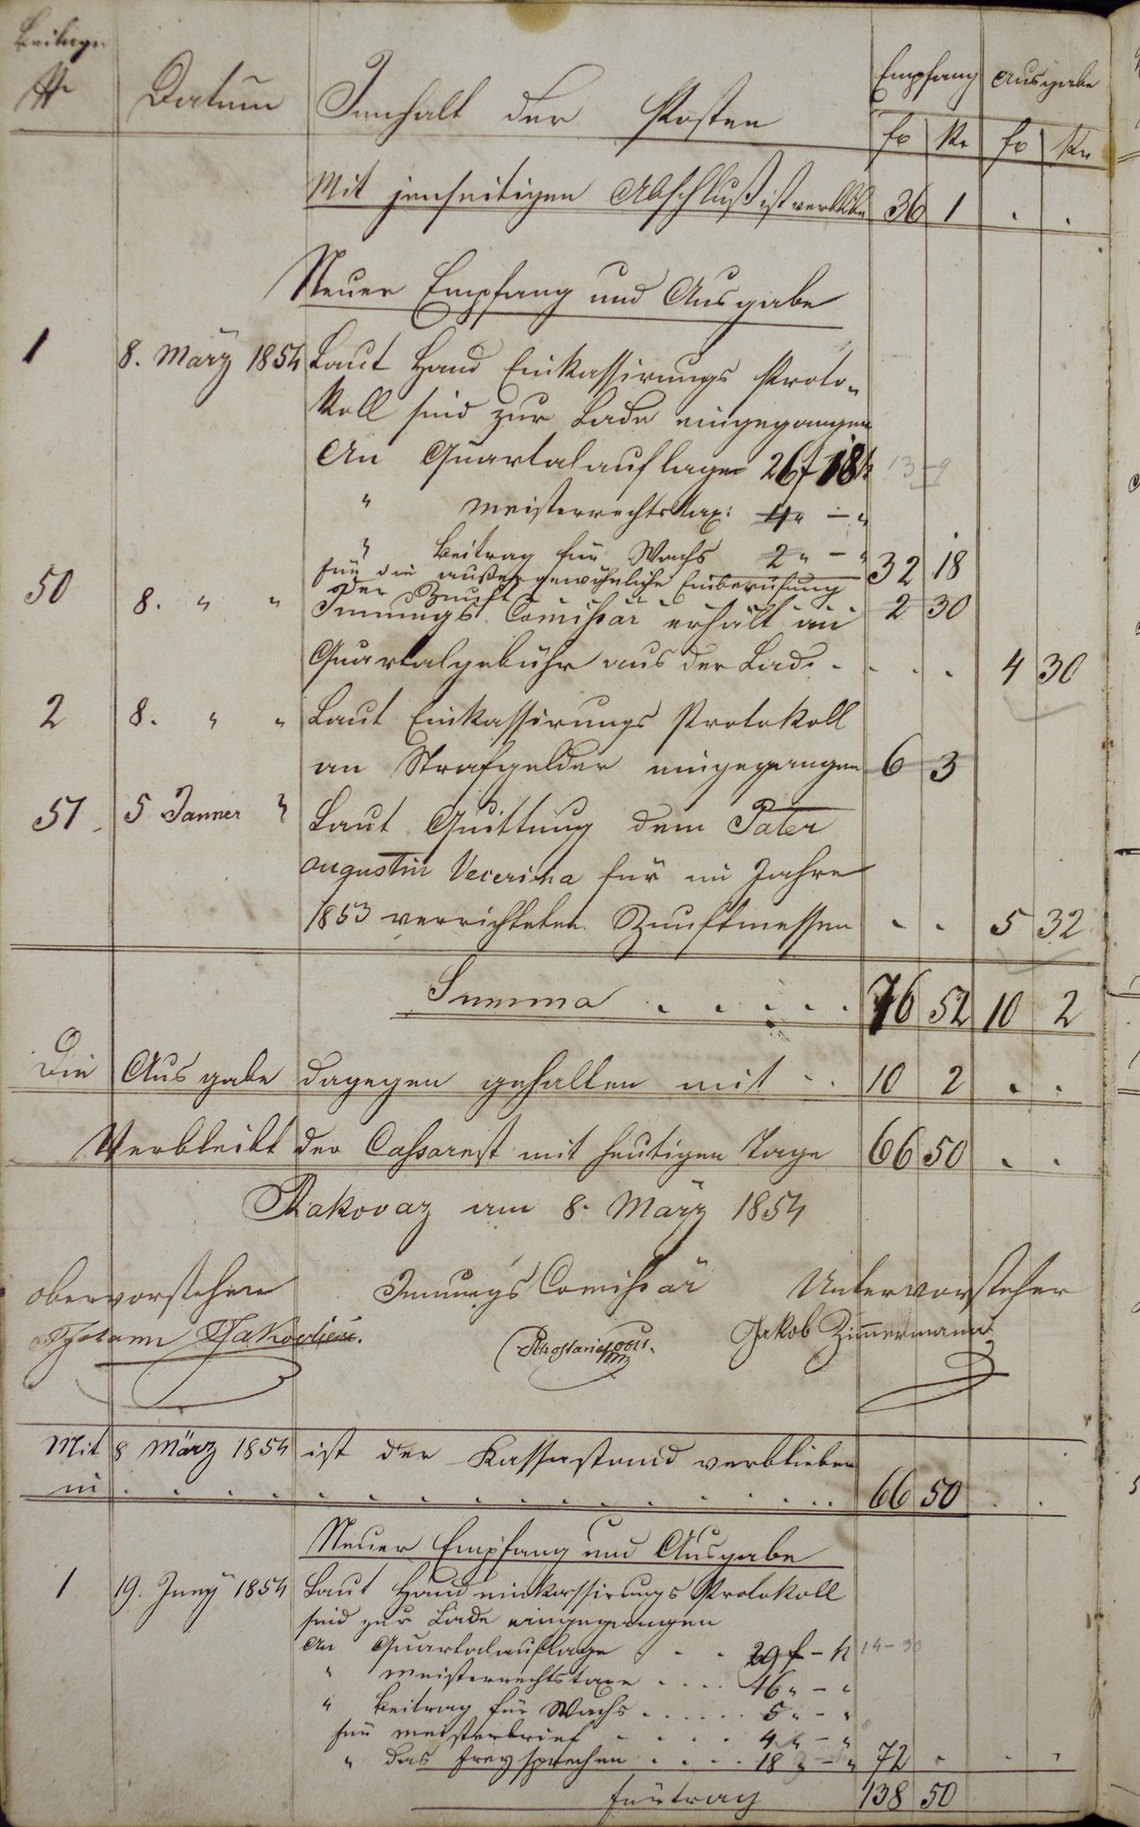 Beilage
Nr Datum Innhalt der Posten Empfang Ausgabe
fr Kr fr Kr
Mit jenseitigen Abschluß ist verblieben 36 1 . .
Neuer Empfang und Ausgabe
1 8. März 1854 Laut Hand Einkassirungs Proto-
koll sind zur Lade eingegangen
An Quartalauflage 26 f 18 k 13-9
" Meisterrechtstax: 4 " — "
" Beitrag für Wachs 2 " — " 32 18
für die außergewöhnliche Einberufung
der Zunft 2 30
50 8. " " Innungs Comißär erhält an
Quartalgebühr aus der Lade . . . . 4 30
2 8. " " Laut Einkassirungs Protokoll
an Strafgelder eingegangen 6 3
51 5 Janner " Laut Quittung dem Pater
Augustin Vecerina für im Jahre
1853 verrichteten Zunftmessen . . 5 32
Summa . . . . . 76 52 10 2
Die Ausgabe dagegen gehalten mit . . 10 2 . .
Verbleibt der Cassarest mit heutigen Tage 66 50 . .
Rakovaz am 8. März 1854
Obervorsteher Innungs Comißär Untervorsteher
Johann Jakob Zimmermann
Mit 8 März 1854 ist der Kassastand verblieben
in . . . . . . . . . . . . . . . 66 50 . .
Neuer Empfang und Ausgabe
1 19. Juny 1854 Laut Handeinkassirungs Protokoll
sind zur Lade eingegangen
An Quartalauflage . . . 29 f — k 14-30
" Meisterrechtstaxe . . . . 16 " — "
" Beitrag für Wachs . . . . . . 5 " — "
für Meisterbrief . . . . 4 " — "
" das Freysprechen . . . . 18 " — " 72 . . .
Fürtrag 138 50